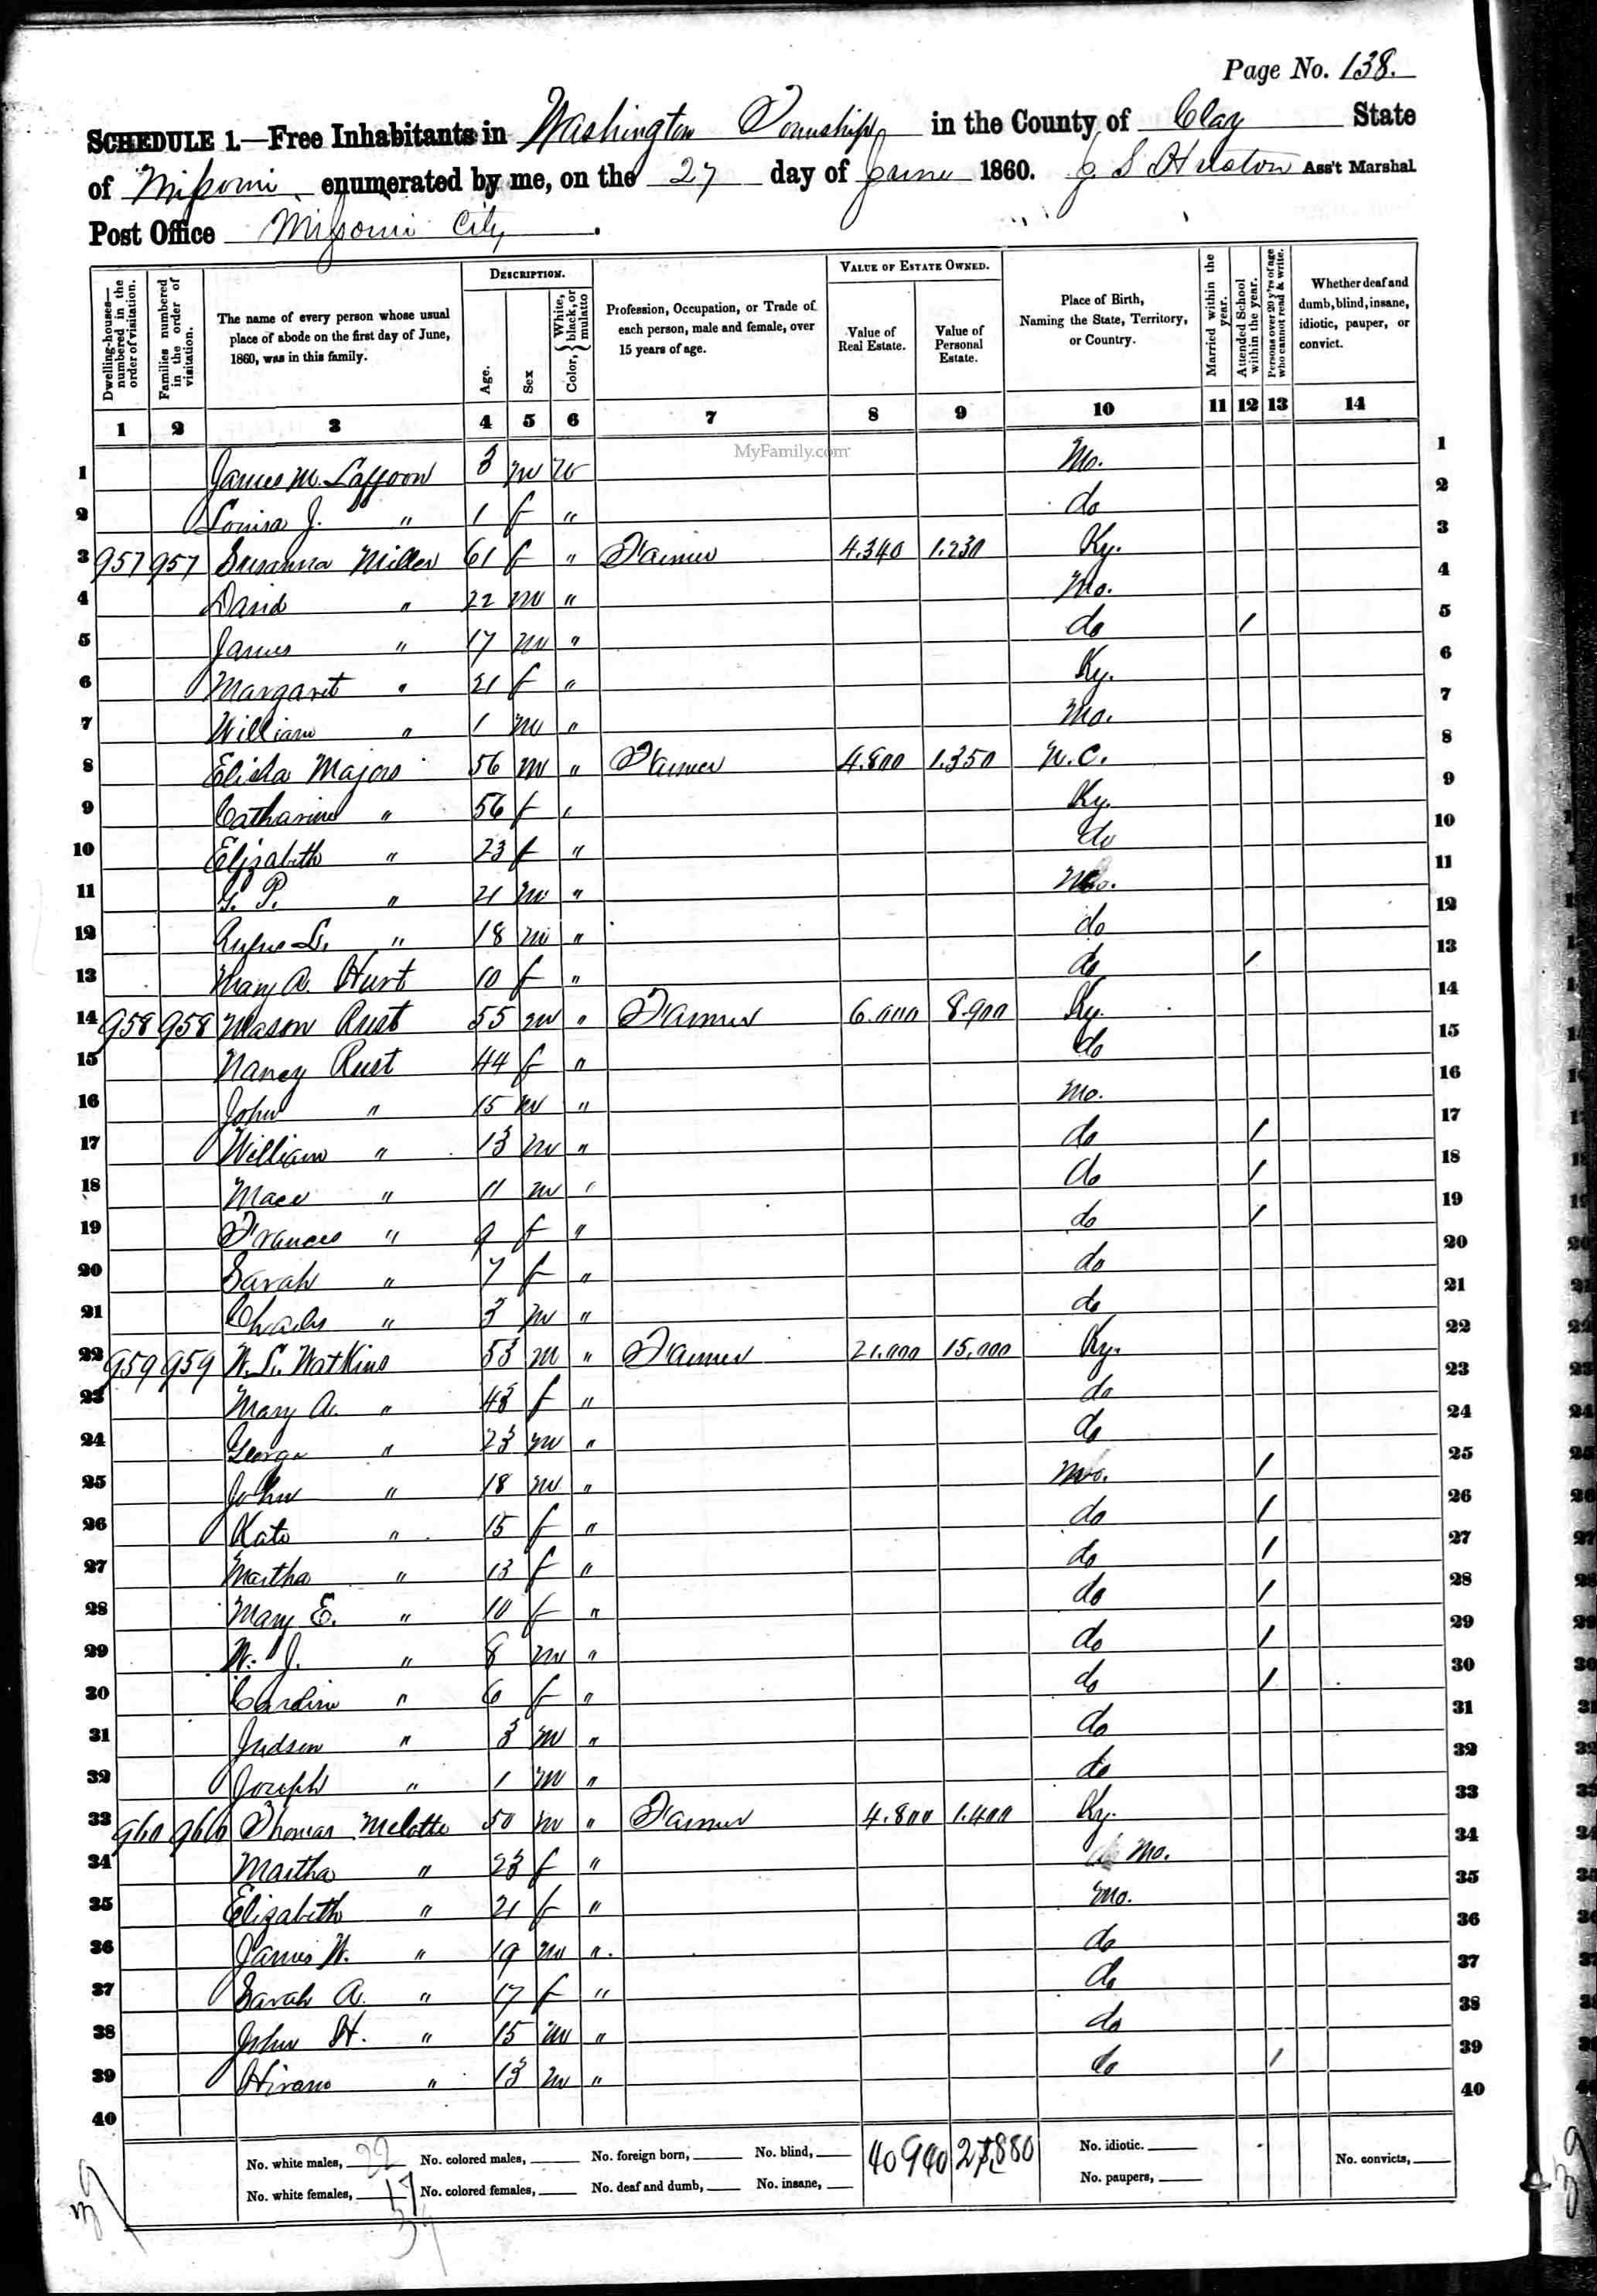 Page No. 138.
SCHEDULE 1.—Free Inhabitants in Washington Township in the County of Clay State
of Missouri enumerated by me, on the 27 day of June 1860. J. S. Huston Ass't Marshal
Post Office Missouri City.
Dwelling-houses—numbered in the order of visitation.
Families numbered in the order of visitation.
The name of every person whose usual place of abode on the first day of June, 1860, was in this family.
DESCRIPTION.
Age.
Sex
Color, { White, black, or mulatto
Profession, Occupation, or Trade of each person, male and female, over 15 years of age.
VALUE OF ESTATE OWNED.
Value of Real Estate.
Value of Personal Estate.
Place of Birth, Naming the State, Territory, or Country.
Married within the year.
Attended School within the year.
Persons over 20 y'rs of age who cannot read & write.
Whether deaf and dumb, blind, insane, idiotic, pauper, or convict.
1 2 3 4 5 6 7 8 9 10 11 12 13 14
MyFamily.com
1 James M. Laffoon 3 m W Mo. 1
2 Louisa J. " 1 f " do 2
3 957 957 Susanna Miller 61 f " Farmer 4.340 1.230 Ky. 3
4 David " 22 m " Mo. 4
5 James " 17 m " do / 5
6 Margaret " 21 f " Ky. 6
7 William " 1 m " Mo. 7
8 Elisha Majors 56 m " Farmer 4.800 1.350 N.C. 8
9 Catharine " 56 f " Ky. 9
10 Elizabeth " 23 f " do 10
11 P. " 21 m " Mo. 11
12 Rufus " 18 m " do 12
13 Mary A. Hurt 10 f " do / 13
14 958 958 Mason Rust 55 m " Farmer 6.000 8.900 Ky. 14
15 Nancy Rust 44 f " do 15
16 John " 15 m " Mo. 16
17 William " 13 m " do / 17
18 Mace " 11 m " do / 18
19 Frances " 9 f " do / 19
20 Sarah " 7 f " do 20
21 Charles " 3 m " do 21
22 959 959 W. L. Watkins 53 m " Farmer 21.000 15.000 Ky. 22
23 Mary A. " 43 f " do 23
24 George " 23 m " do 24
25 John " 18 m " Mo. / 25
26 Kate " 15 f " do / 26
27 Martha " 13 f " do / 27
28 Mary E. " 10 f " do / 28
29 W. J. " 8 m " do / 29
30 Carolin " 6 f " do / 30
31 Judson " 3 m " do 31
32 Joseph " 1 m " do 32
33 960 960 Thomas Melotte 50 m " Farmer 4.800 1.400 Ky. 33
34 Martha " 23 f " Mo. 34
35 Elizabeth " 21 f " Mo. 35
36 James W. " 19 m " do 36
37 Sarah A. " 17 f " do 37
38 John H. " 15 m " do 38
39 Hiram " 13 m " do / 39
40 40
No. white males, 22 No. colored males, No. foreign born, No. blind, 40940 27,880 No. idiotic.
No. white females, 17 No. colored females, No. deaf and dumb, No. insane, No. paupers, No. convicts,
39
39